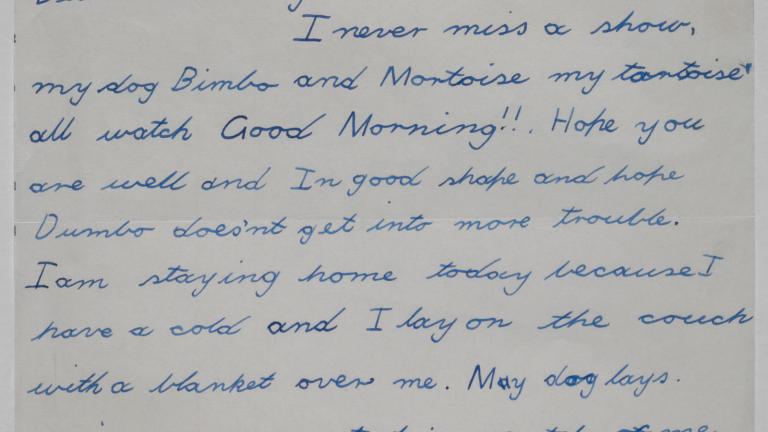 I never miss a show,
my dog Bimbo and Mortoise my tortoise
all watch Good Morning!!. Hope you
are well and In good shape and hope
Dumbo does'nt get into more trouble.
I am staying home today because I
have a cold and I lay on the couch
with a blanket over me. May dog lays.
of me